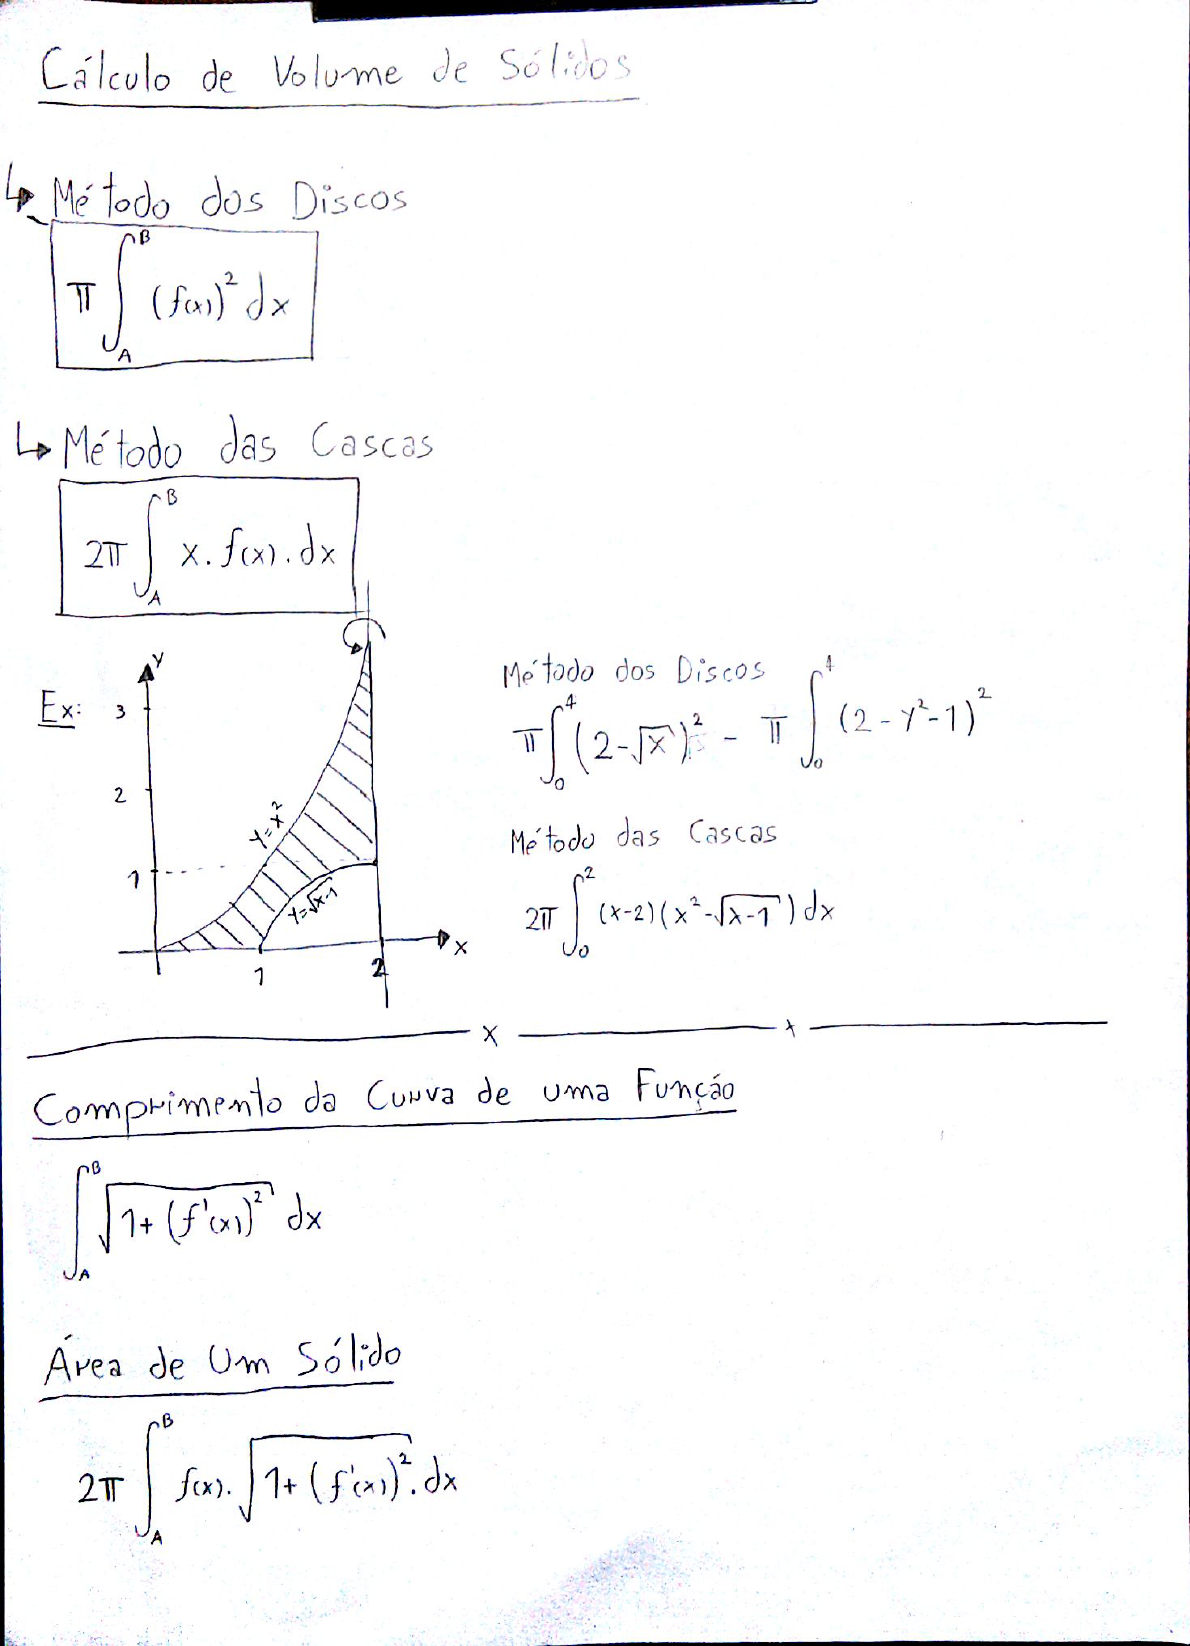 Cálculo de Volume de Sólidos
↳ Método dos Discos
π ∫_A^B (f(x))² dx
↳ Método das Cascas
2π ∫_A^B x . f(x) . dx
Ex:
y
3
2
1
y=x²
y=√x-1
1
2
x
Método dos Discos
π ∫_0^4 (2-√x)² - π ∫_0^4 (2-y²-1)²
Método das Cascas
2π ∫_0^2 (x-2)(x²-√x-1) dx
x x
Comprimento da Curva de uma Função
∫_A^B √1+(f'(x))² dx
Área de Um Sólido
2π ∫_A^B f(x). √1+(f'(x))² . dx